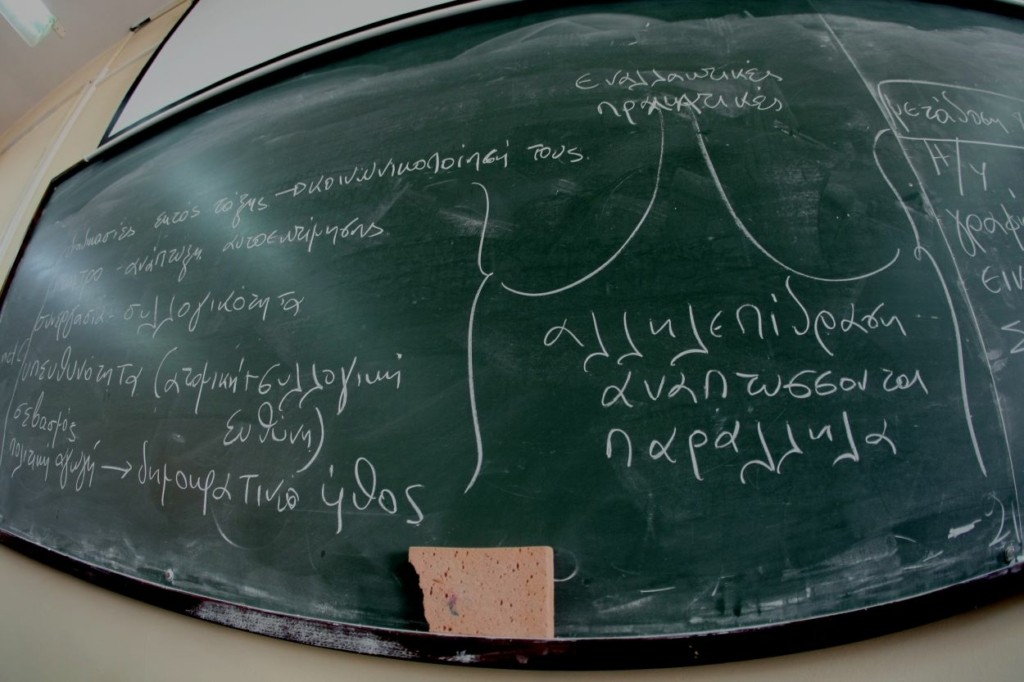 εναλλακτικές
πρακτικές
διαδικασίες εκτός τάξης → κοινωνικοποίησή τους
- ανάπτυξη αυτοεκτίμησης
συνεργασία - συλλογικότητα
υπευθυνότητα (ατομική + συλλογική
ευθύνη)
σεβασμός
πολιτική αγωγή → δημοκρατικό ήθος
αλληλεπίδραση
αναπτύσσονται
παράλληλα
μετάδοση
Η/Υ